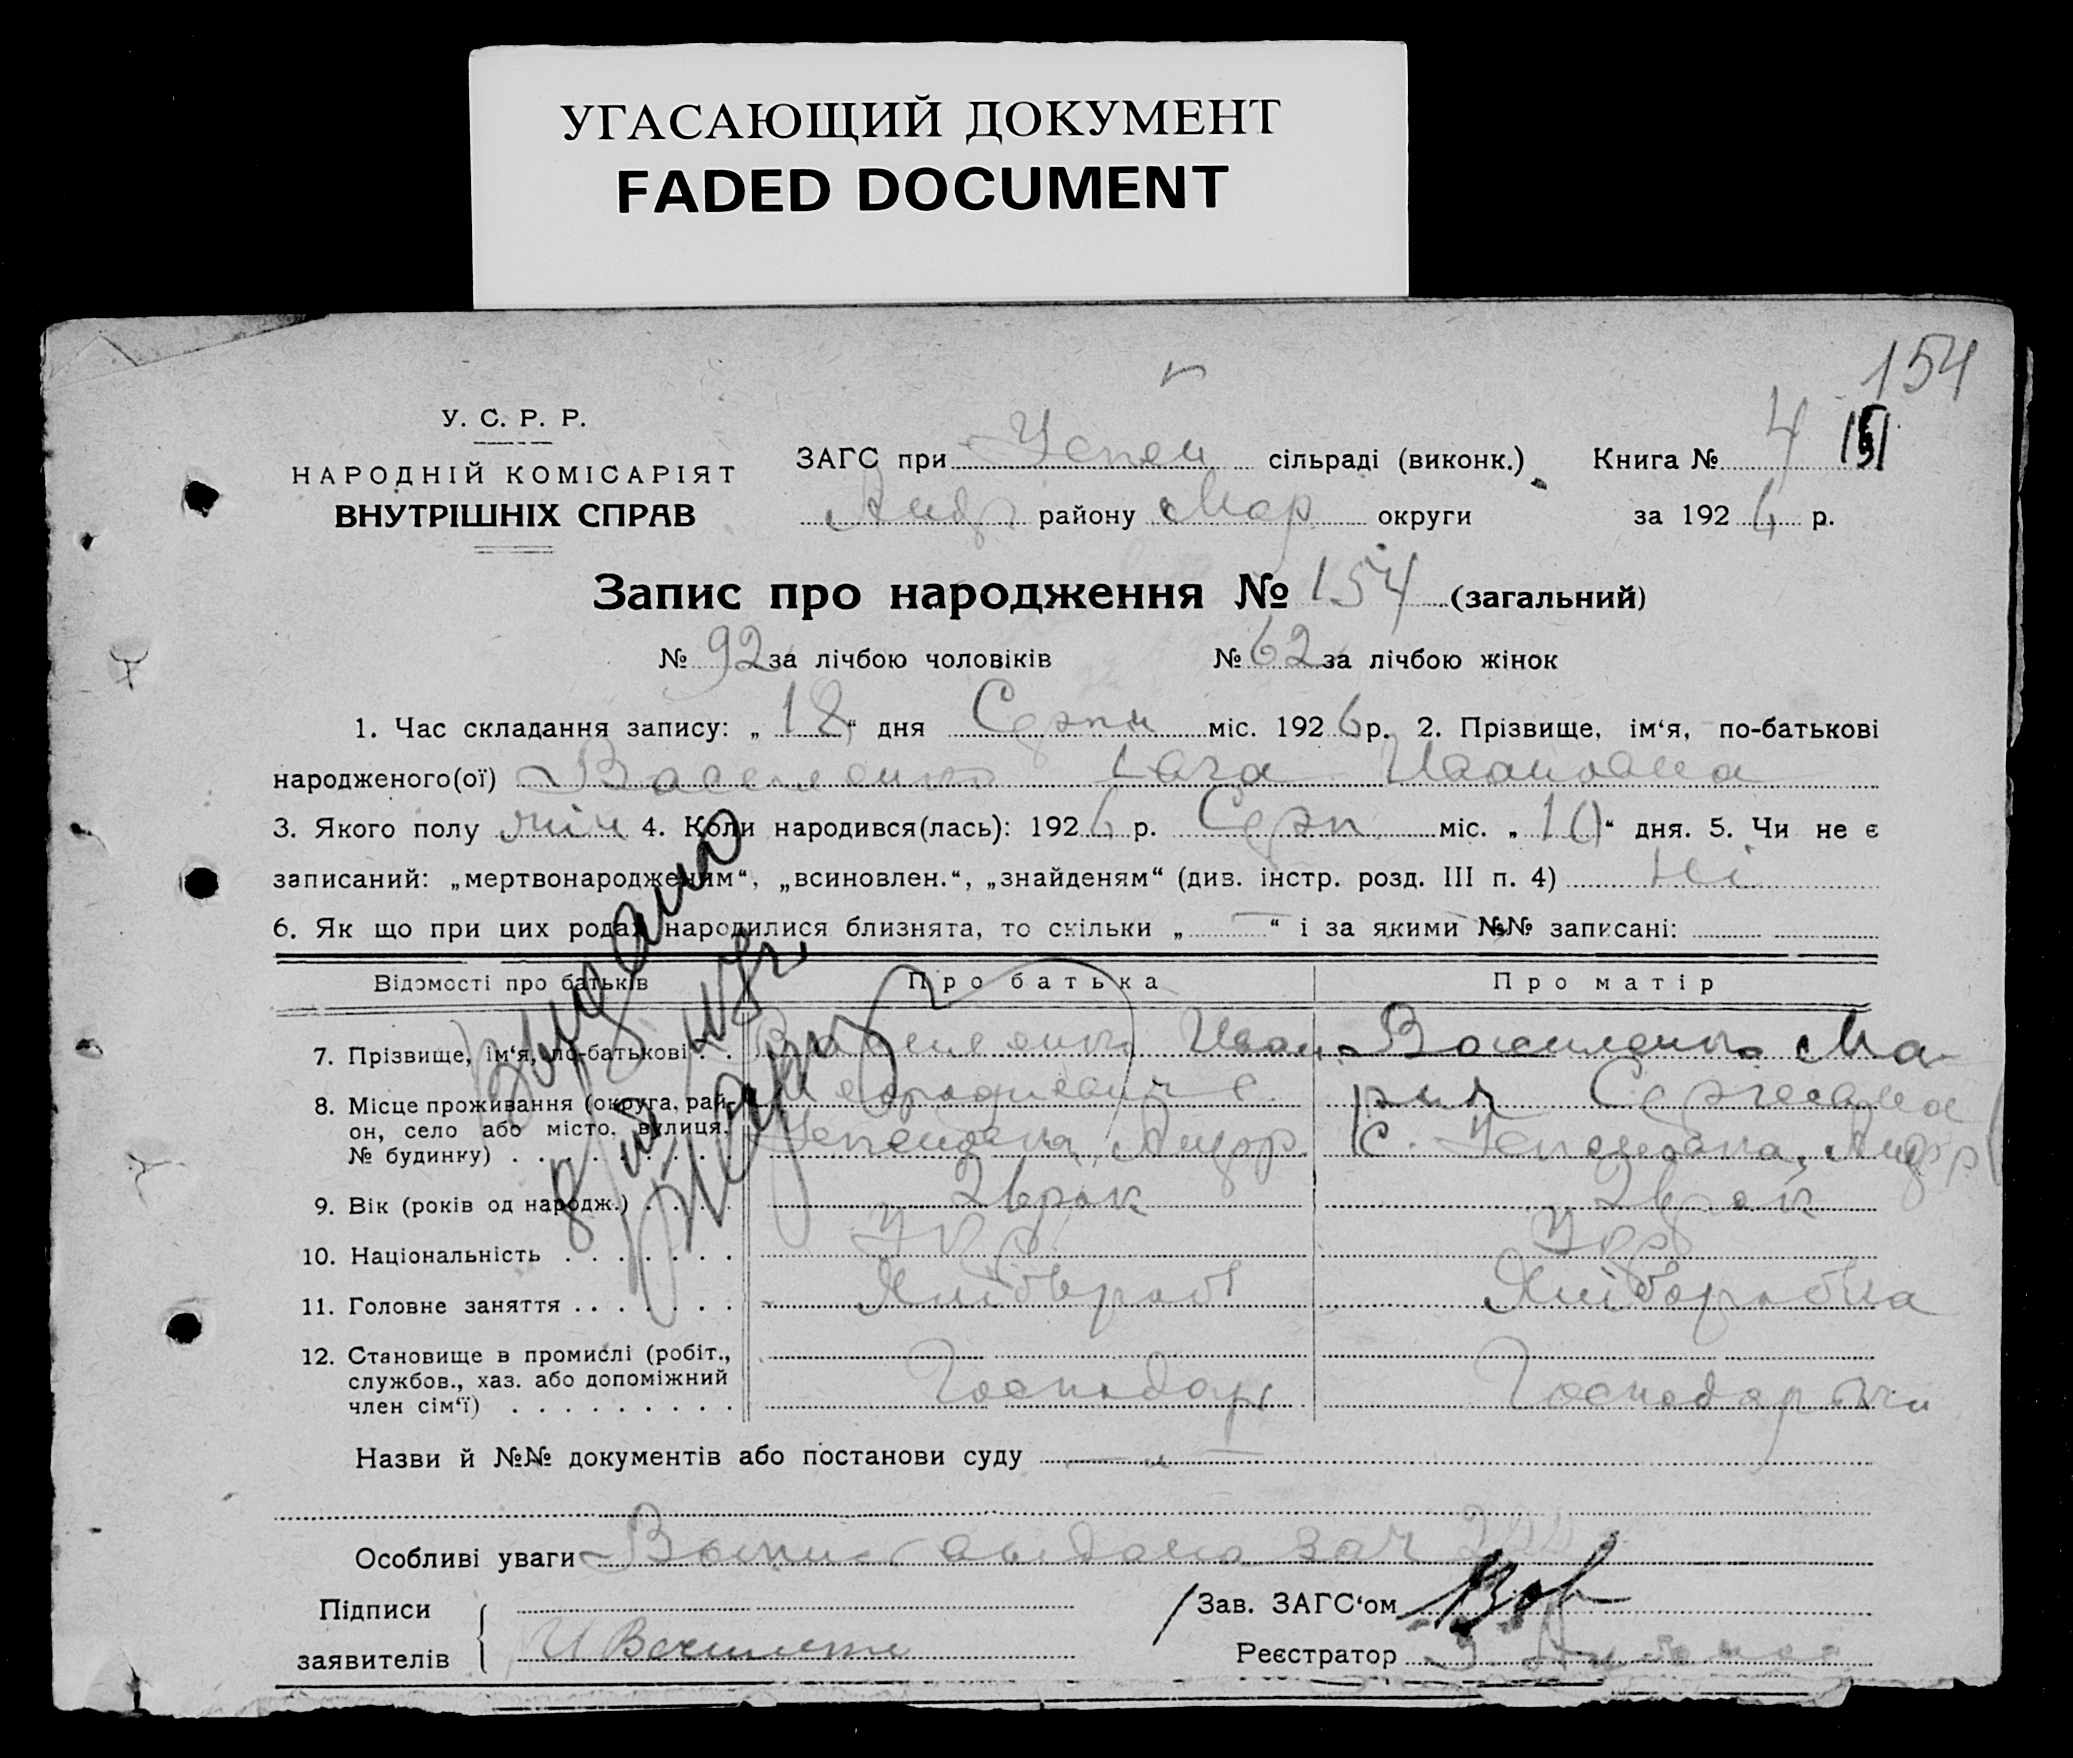 УГАСАЮЩИЙ ДОКУМЕНТ
FADED DOCUMENT
154
У. С. Р. Р.
НАРОДНІЙ КОМІСАРІЯТ
ВНУТРІШНІХ СПРАВ
ЗАГС при Успен сільраді (виконк.) Книга № 4 151
Андр району Мар округи за 1926 р.
Запис про народження № 154 (загальний)
№ 92 за лічбою чоловіків № 62 за лічбою жінок
1. Час складання запису: „ 18 “ дня Серпн міс. 1926 р. 2. Прізвище, ім‘я, по-батькові
народженого(ої) Василенко Ивановна
3. Якого полу жін 4. Коли народився(лась): 1926 р. Серп міс. „ 10 “ дня. 5. Чи не є
записаний: „мертвонародженям“, „всиновлен.“, „знайденям“ (див. інстр. розд. III п. 4) Ні
6. Як що при цих родах народилися близнята, то скільки „ — “ і за якими №№ записані:
Відомості про батьків Про батька Про матір
7. Прізвище, ім‘я, по-батькові . . Василенко Иван Василенко Ма-
8. Місце проживання (округа, рай- рия Сергеевна
он, село або місто, вулиця, Успеновка, Андр. с. Успеновка, Андр р
№ будинку) . . . . . . . . .
9. Вік (років од народж.) . . . . 26 рок 26 рок
10. Національність . . . . . . . Укр. Укр
11. Головне заняття . . . . . . . Хлібороб Хліборобка
12. Становище в промислі (робіт.,
службов., хаз. або допоміжний Господар Господарочи
член сім‘ї) . . . . . . . . .
Назви й №№ документів або постанови суду
Особливі уваги Выпис выдана за №
Підписи Зав. ЗАГС‘ом
заявителів И Василенко Реєстратор